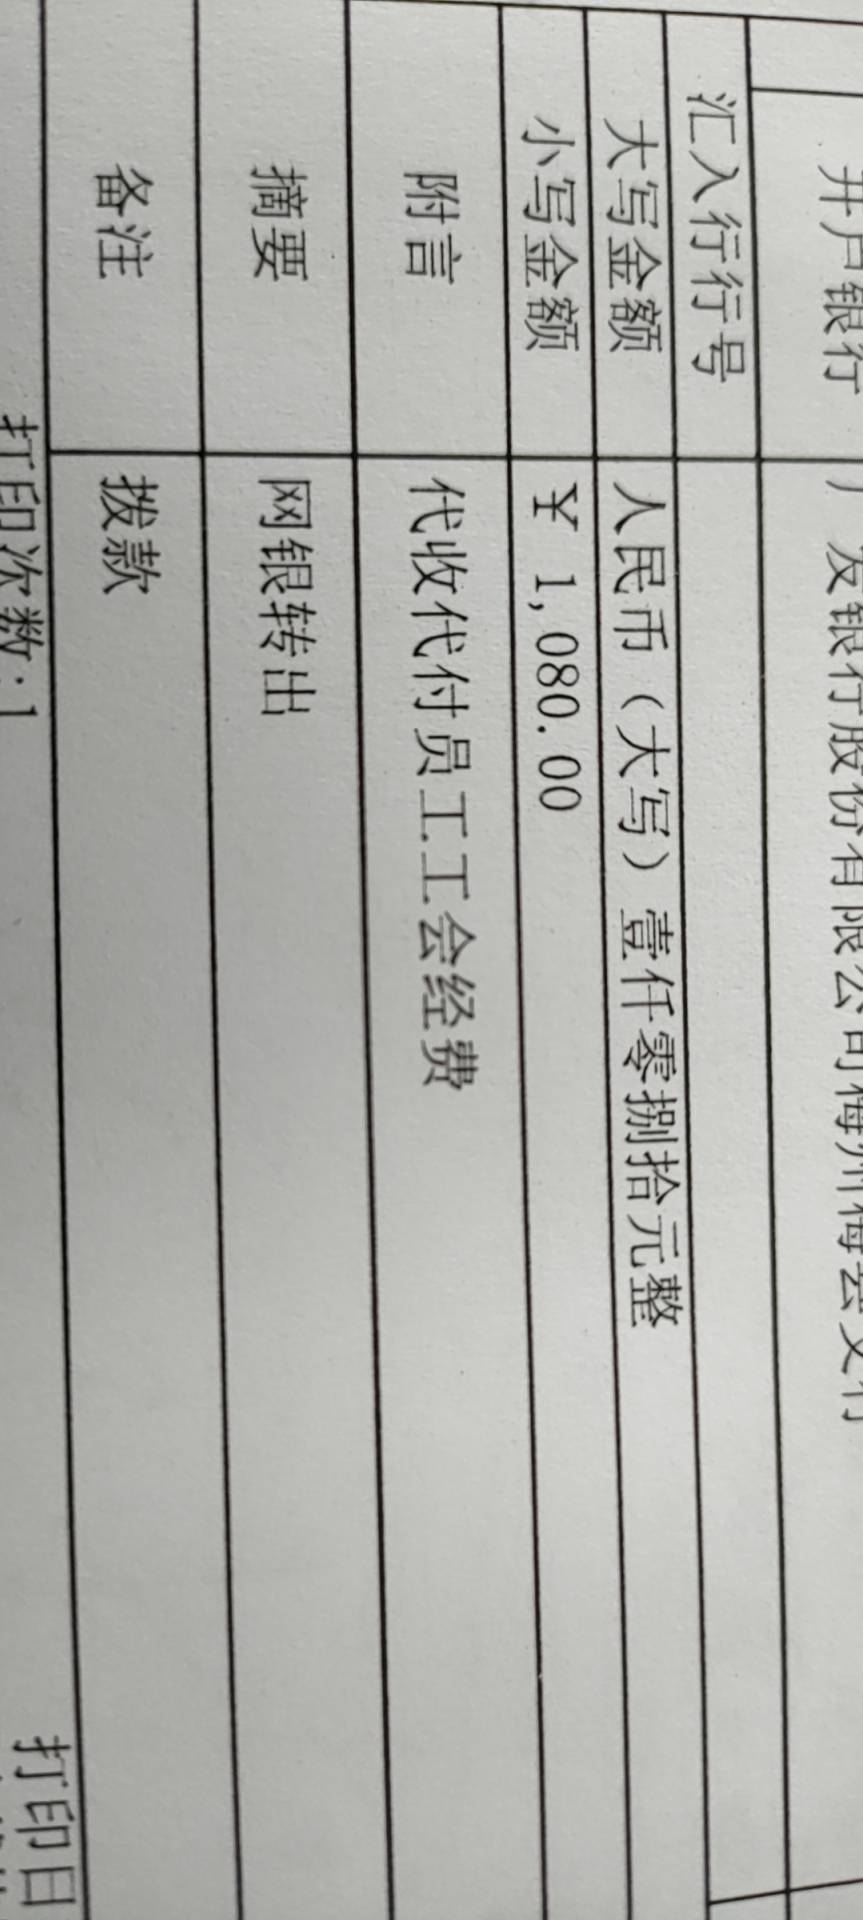 开户银行 广发银行股份有限公司梅州梅县支行
汇入行行号
大写金额 人民币（大写）壹仟零捌拾元整
小写金额 ￥ 1,080.00
附言 代收代付员工工会经费
摘要 网银转出
备注 拨款
打印次数:1 打印日